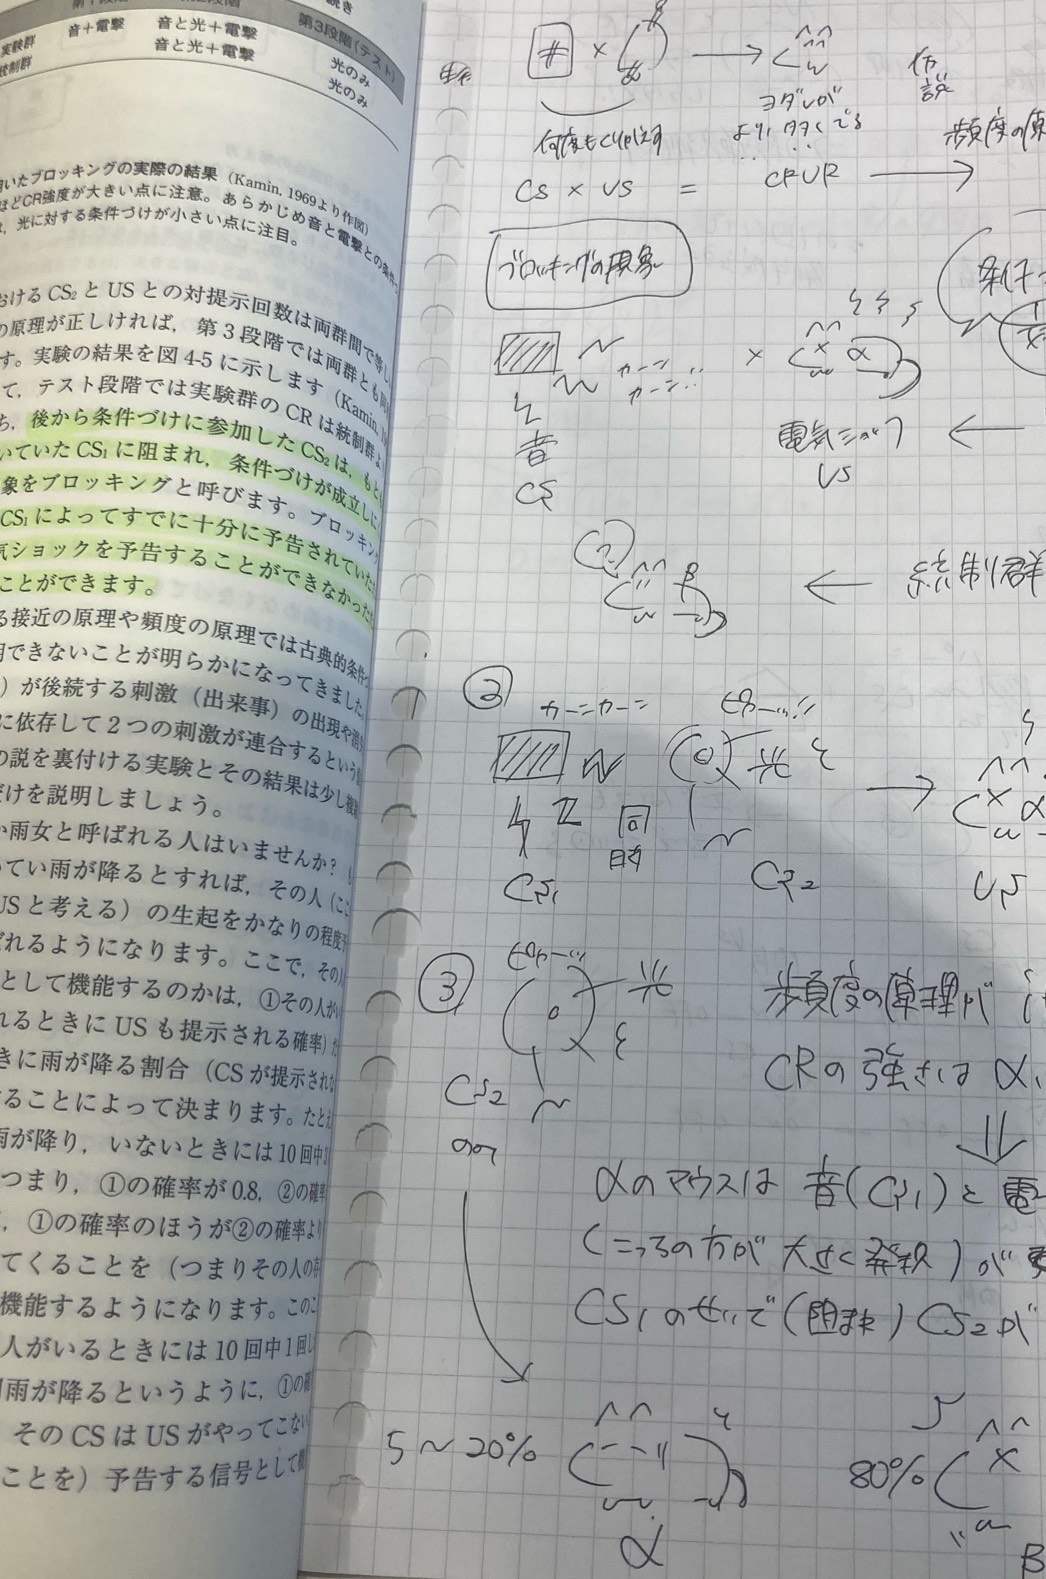 続き
実験群 音+電撃 音と光+電撃 光のみ
統制群 音と光+電撃 光のみ
第3段階(テスト)
いたブロッキングの実際の結果 (Kamin, 1969より作図)
ほどCR強度が大きい点に注意。あらかじめ音と電撃との条件
, 光に対する条件づけが小さい点に注目。
おけるCS₂とUSとの対提示回数は両群間で等し
の原理が正しければ, 第3段階では両群とも同
す。実験の結果を図4-5に示します (Kamin,
て, テスト段階では実験群のCRは統制群よ
ち, 後から条件づけに参加したCS₂は, もと
いていたCS₁に阻まれ, 条件づけが成立しに
象をブロッキングと呼びます。ブロッキン
CS₁によってすでに十分に予告されていた
気ショックを予告することができなかった
ことができます。
る接近の原理や頻度の原理では古典的条件づ
明できないことが明らかになってきました
)が後続する刺激 (出来事) の出現や消
に依存して2つの刺激が連合するという
の説を裏付ける実験とその結果は少し複
だけを説明しましょう。
か雨女と呼ばれる人はいませんか?
いてい雨が降るとすれば, その人 (こ
USと考える) の生起をかなりの程度
ばれるようになります。ここで, その
として機能するのかは, ①その人が
れるときにUSも提示される確率)
きに雨が降る割合 (CSが提示され
することによって決まります。たと
雨が降り, いないときには10回中
つまり, ①の確率が0.8, ②の確率
, ①の確率のほうが②の確率より
てくることを (つまりその人の存
機能するようになります。このこ
人がいるときには10回中1回し
雨が降るというように, ①の確
そのCSはUSがやってこない
ことを) 予告する信号として機
# × →
仮説
ヨダレが
より多くでる
何度もくりかえす
頻度の原
CS × US = CRUR →
ブロッキングの現象
条件
カーン
カーン!!
× α
音
CS
電気ショック ←
US
← 統制群
β
② カーンカーン ピカーッ!!
光
同時
CS₁ CS₂ US
α
③ ピカーッ 光
CS₂
のみ
頻度の原理が
CRの強さは α
⇓
αのマウスは 音(CS₁)と電
(こっちの方が大きく発汗)が
CS₁のせいで(阻まれ)CS₂が
5~20%
α
80%
B